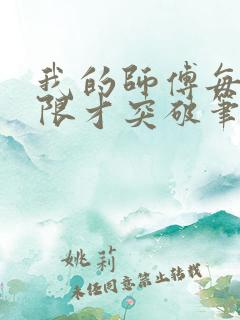 我的師傅每
限才突破筆
姚莉
未经同意禁止转载